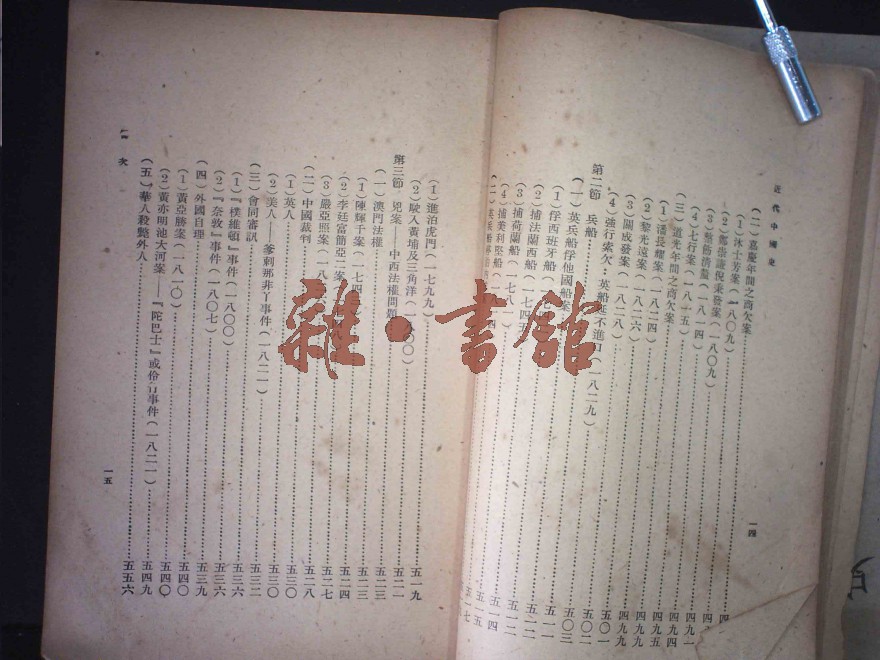 近代中國史
一四
(二)嘉慶年間之商欠案
(1)沐士芳案(一八〇九)
(2)鄭崇謙倪秉發案(一八〇九)
(3)整飭清釐(一八一四)
(4)七行案(一八一五)
(三)道光年間之商欠案 四九四
(1)潘長耀案(一八二四) 四九五
(2)黎光遠案(一八二六) 四九九
(3)關成發案(一八二八) 四九九
(4)強行索欠:英船延不進口(一八二九) 五〇一
第二節 兵船 五〇二
(一)英兵船俘他國船案 五〇三
(1)俘西班牙船 五一一
(2)捕法蘭西船 五一二
(3)捕荷蘭船(一七八一) 五一二
(4)捕美利堅船 五一四
(二)英兵船 五一五
(1)進泊虎門(一七九九) 五一九
(2)駛入黃埔及三角洋 五二一
第三節 兇案——中西法權問題
(一)澳門法權 五二三
(1)陳輝千案 五二三
(2)李廷富簡亞二案 五二四
(3)嚴亞照案 五二七
(二)中國裁判 五二八
(1)英人 五三〇
(2)美人——爹剌那非丫事件(一八二一) 五三〇
(三)會同審訊 五三二
(1)『樸維頓』事件(一八〇〇) 五三六
(2)『奈敦』事件(一八〇七) 五三六
(四)外國自理 五三九
(1)黃亞勝案(一八一〇) 五四〇
(2)黃亦明池大河案——『陀巴士』或伶仃事件(一八二一) 五四〇
(五)華人殺斃外人 五四九
五五六
目次
一五
雜·書館